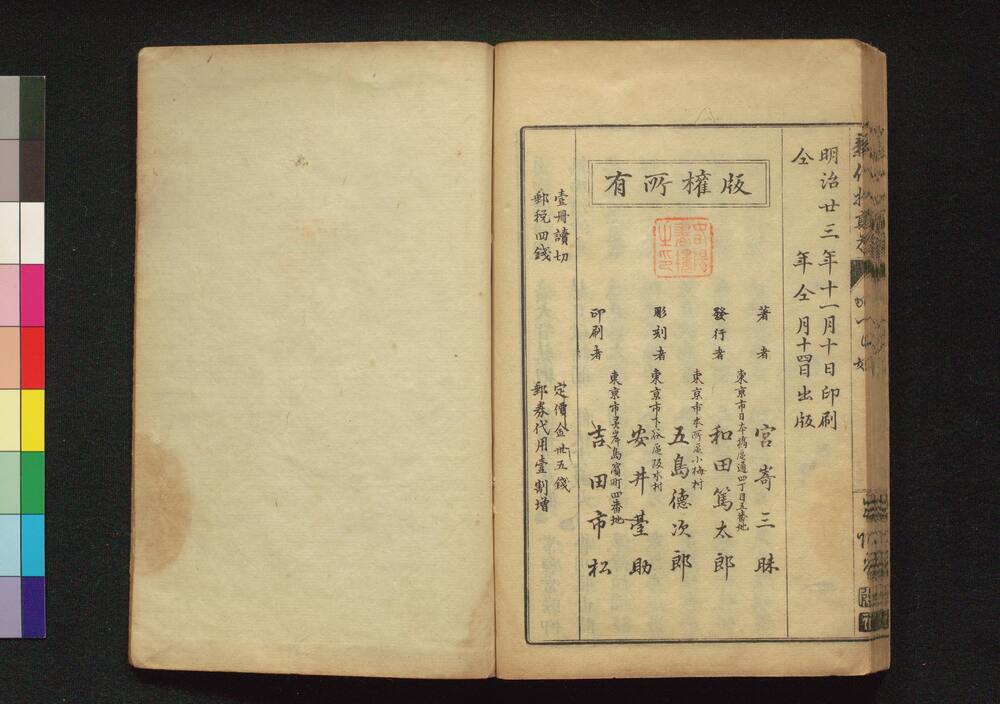 明治廿三年十一月十日印刷
仝年仝月十四日出版
版權所有
著者
宮嵜三昧
發行者
東京市日本橋區通四丁目五番地
和田篤太郎
東京市本所區小梅村
五島德次郎
彫刻者
東京市下谷區坂本村
安井臺助
印刷者
東京市霊岸島濱町四番地
吉田市松
壹冊讀切
郵税四錢
定價金卅五錢
郵券代用壹割増